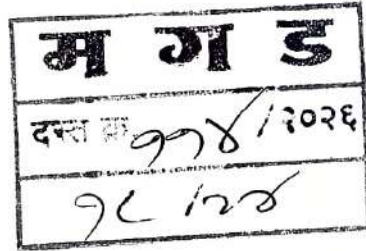 म ग ड
दस्त क्र. ११४/२०२६
१८/२४